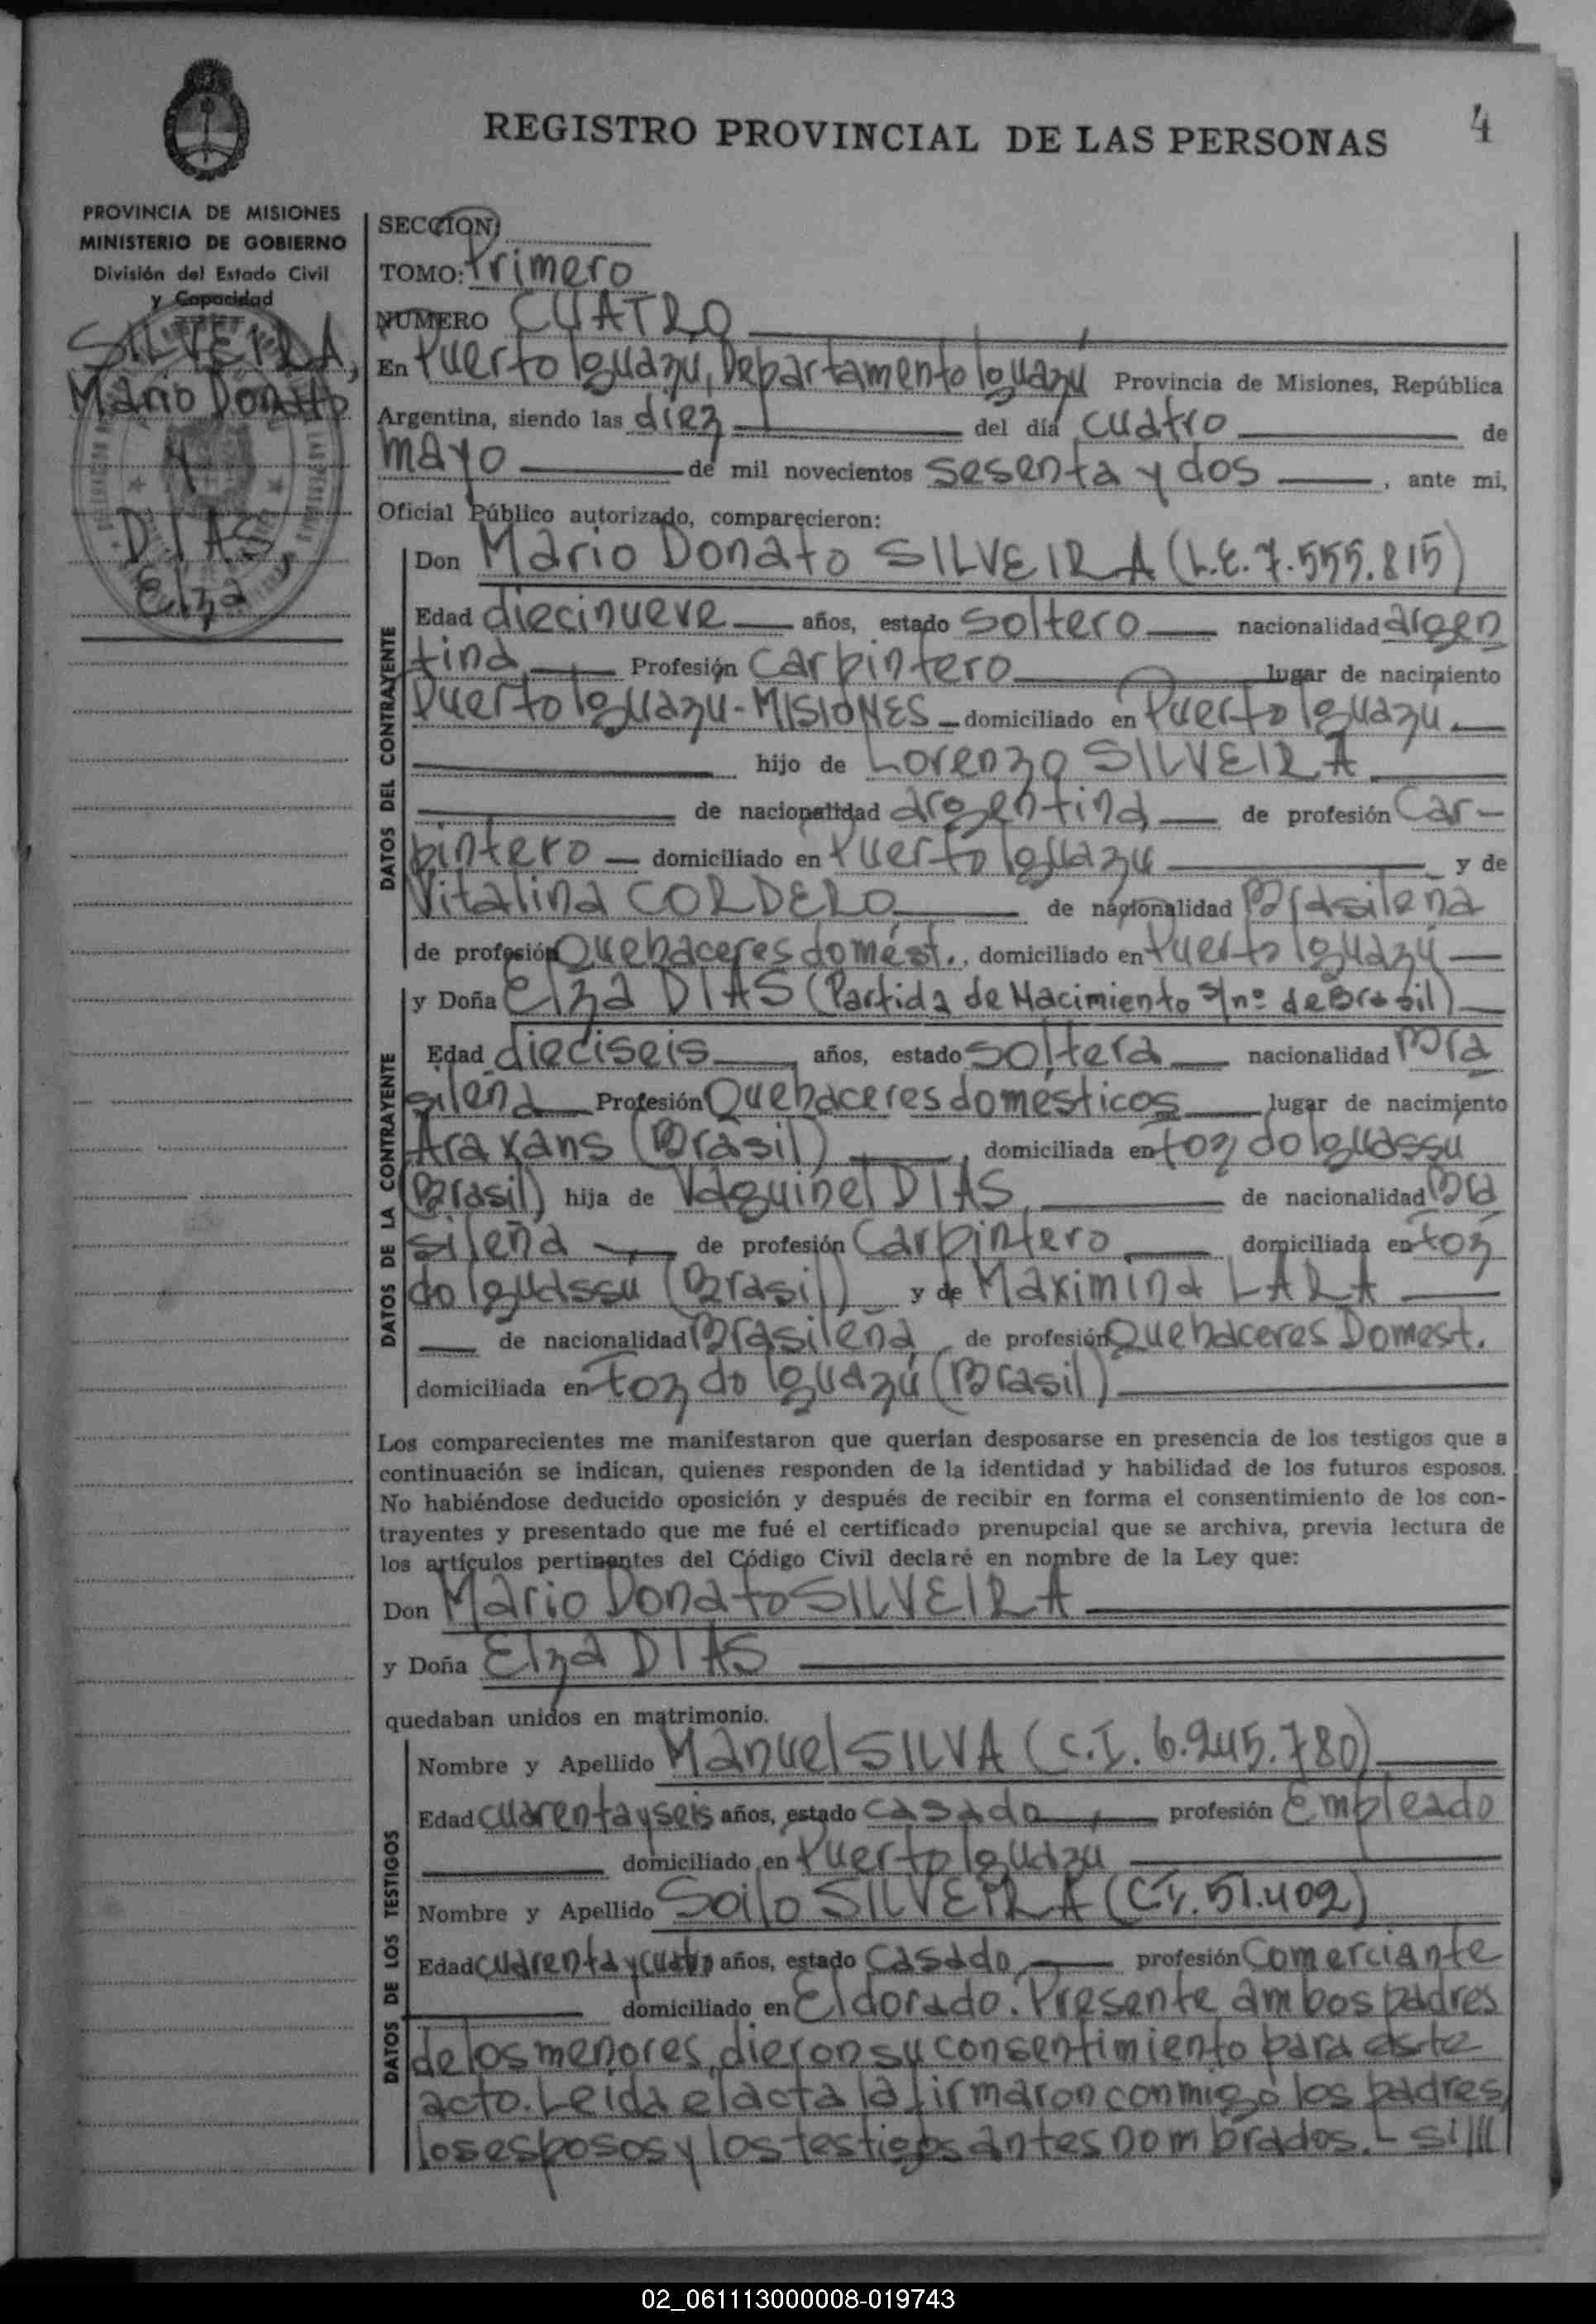 REGISTRO PROVINCIAL DE LAS PERSONAS
4
PROVINCIA DE MISIONES
MINISTERIO DE GOBIERNO
División del Estado Civil
y Capacidad
SILVEIRA,
Mario Donato
Y
DIAS,
Elza
SECCION)
TOMO: Primero
NUMERO CUATRO
En Puerto Iguazú, Departamento Iguazú Provincia de Misiones, República
Argentina, siendo las diez del día cuatro de
mayo de mil novecientos sesenta y dos, ante mi,
Oficial Público autorizado, comparecieron:
DATOS DEL CONTRAYENTE
Don Mario Donato SILVEIRA (L.E. 7.555.815)
Edad diecinueve años, estado soltero nacionalidad argen
tina Profesión Carpintero lugar de nacimiento
Puerto Iguazu-MISIONES domiciliado en Puerto Iguazu.
hijo de Lorenzo SILVEIRA
de nacionalidad argentina de profesión Car-
pintero domiciliado en Puerto Iguazu y de
Vitalina CORDERO de nacionalidad Brasilena
de profesión Quehaceres domést., domiciliado en Puerto Iguazú
DATOS DE LA CONTRAYENTE
y Doña Elza DIAS (Partida de Nacimiento s/nº de Brasil)
Edad dieciseis años, estado soltera nacionalidad Bra
sileña Profesión Quehaceres domésticos lugar de nacimiento
Araxans (Brasil) domiciliada en foz do Iguassu
(Brasil) hija de Vaguinel DIAS, de nacionalidad Bra
sileña de profesión Carpintero domiciliada en foz
do Iguassú (Brasil) y de Maximina LARA
de nacionalidad Brasileña de profesión Quehaceres Domest.
domiciliada en Foz do Iguazú (Brasil)
Los comparecientes me manifestaron que querían desposarse en presencia de los testigos que a
continuación se indican, quienes responden de la identidad y habilidad de los futuros esposos.
No habiéndose deducido oposición y después de recibir en forma el consentimiento de los con-
trayentes y presentado que me fué el certificado prenupcial que se archiva, previa lectura de
los artículos pertinentes del Código Civil declaré en nombre de la Ley que:
Don Mario Donato SILVEIRA
y Doña Elza DIAS
quedaban unidos en matrimonio.
DATOS DE LOS TESTIGOS
Nombre y Apellido Manuel SILVA (C.I. 6.245.780)
Edad cuarenta y seis años, estado casado, profesión Empleado
domiciliado en Puerto Iguazu
Nombre y Apellido Soilo SILVEIRA (C.I. 51.402)
Edad cuarenta y cuatro años, estado casado, profesión Comerciante
domiciliado en Eldorado. Presente ambos padres
de los menores, dieron su consentimiento para este
acto. Leída el acta la firmaron conmigo los padres,
los esposos y los testigos antes nombrados.-
02_061113000008-019743